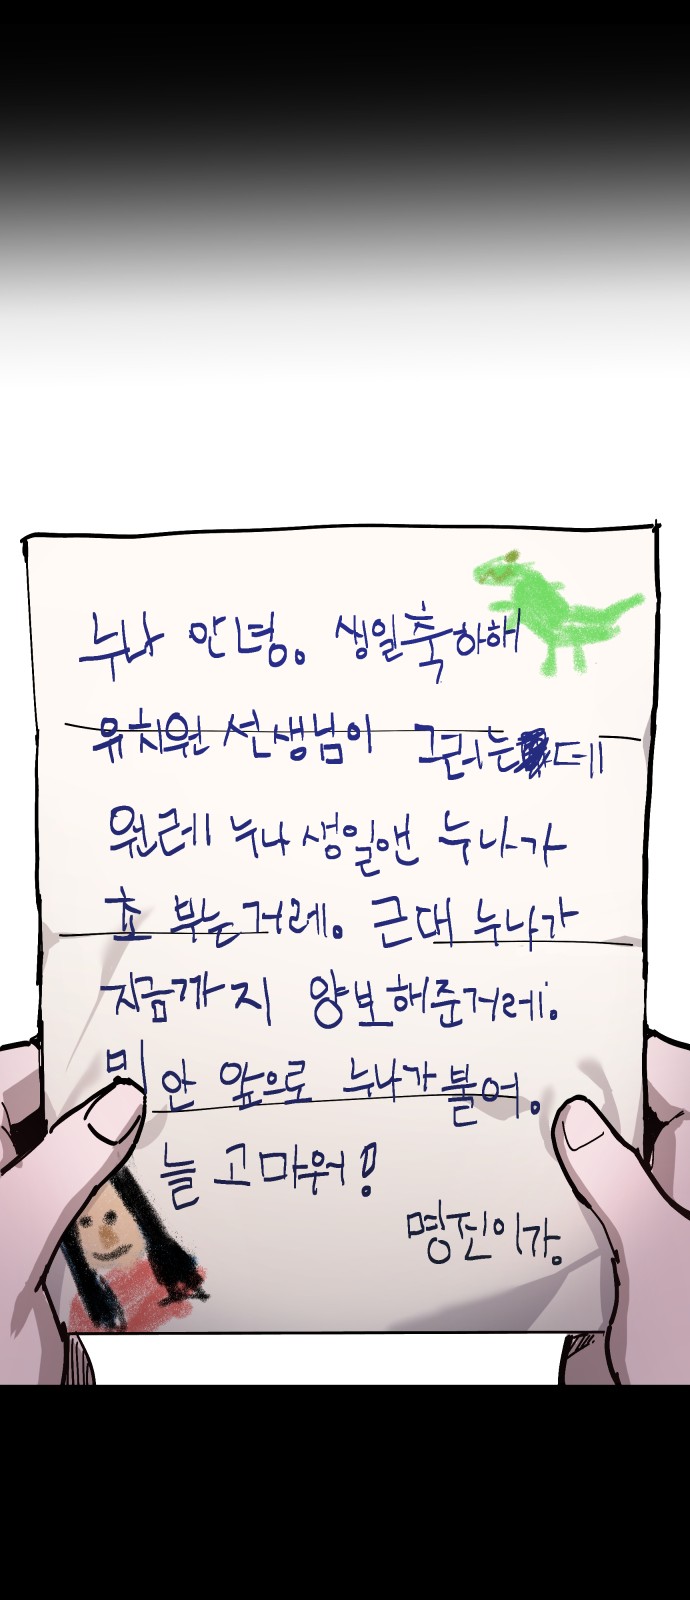 누나 안녕. 생일축하해
유치원 선생님이 그러는데
원레 누나 생일앤 누나가
쵸 부는거레. 근대 누나가
지금까지 양보해준거레.
미안 앞으로 누나가 불어.
늘 고마워!
명진이가.